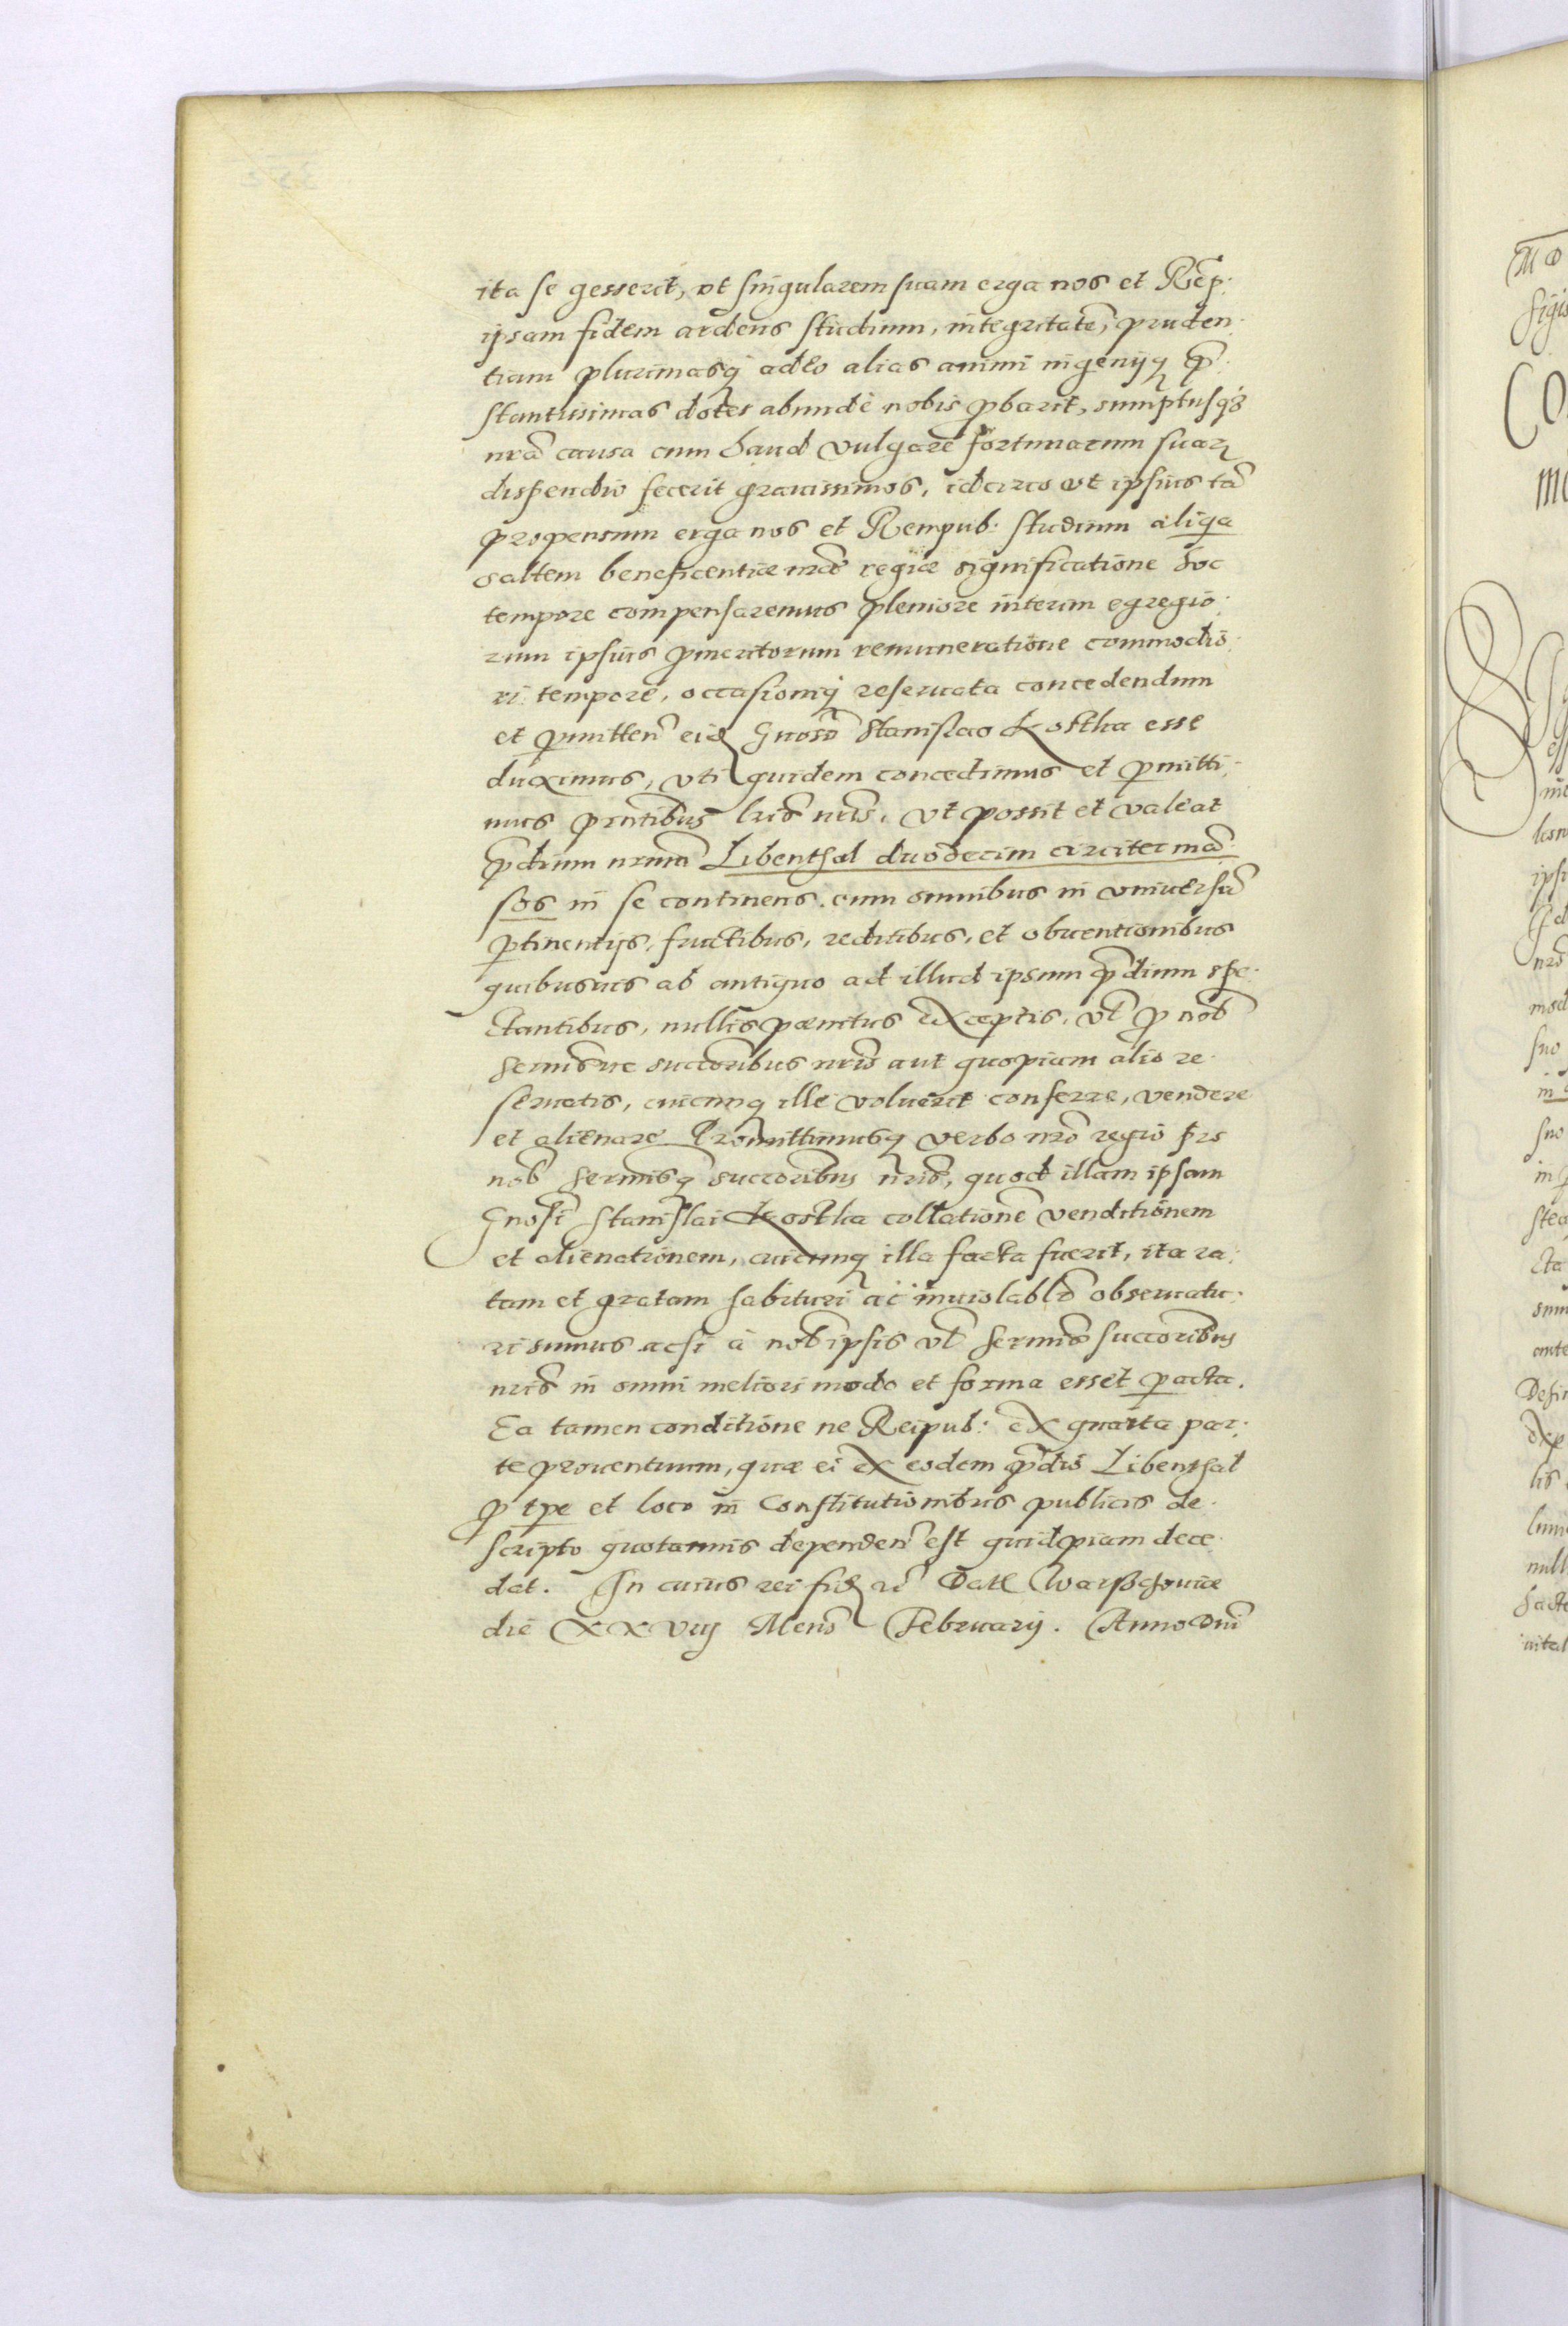 ita se gesserit, vt singularem suam erga nos et Remp:
ipsam fidem ardens studium, integritatē, pruden
tiam plurimasq adeo alias animi ingenijq p̄
stantissimas dotes abunde nobis ꝓbarit, sumptusq3
nr̄a causa cum haud vulgare fortunarum suarꝝ
dispendio fecerit gravissimos, idcirco vt ipsius tā
propensum erga nos et Rempub: studium aliqa
saltem beneficentiæ nr̄æ regiæ significatione hoc
tempore compensaremus pleniore interim egregio:
rum ipsius ꝓmeritorum remuneratione commodio:
ri tempore, occasioniq reseruata concedendum
et ꝑmitten̄ eid Gnoso Stanislao Kostka esse
duximus, vti quidem concedimus et ꝑmitti:
mus pn̄tibus lris nr̄is, vt possit et valeat
p̄dium nrum Libenthal duodecim circiter man
sos in se continens cum omnibus in vniuersū
ꝑtinentijs, fructibus, reditibus, et obuentionibus
quibusuis ab antiquo ad illud ipsum p̄dium spe:
ctantibus, nullis pœnitus exceptis, vl ꝓ nob
sermisue succoribus nris aut quopiam alio re
seruatis, cuicunq ille voluerit conferre, vendere
et alienare Promittimusq verbo nro regio pro
nob sermisq succoribus nris, quod illam ipsam
Gnosi Stanislai Kostka collatione venditionem
et alienationem, cuicunq illa facta fuerit, ita ra:
tam et gratam habituri ac inuiolablr obseruatu:
ri sumus acsi à nob ipsis vl sermis succoribus
nris in omni meliori modo et forma esset ꝑacta.
Ea tamen conditione ne Reipub: ex quarta par:
te prouentuum, quæ ei ex eodem p̄dio Libenthal
ꝓ tpe et loco in Constitutionibus publicis de
scripto quotannis dependen̄ est quidpiam dece
dat. In cuius rei fid rc Datt Warßchouiæ
die XXVIIJ Mens Februarij. Anno Dni